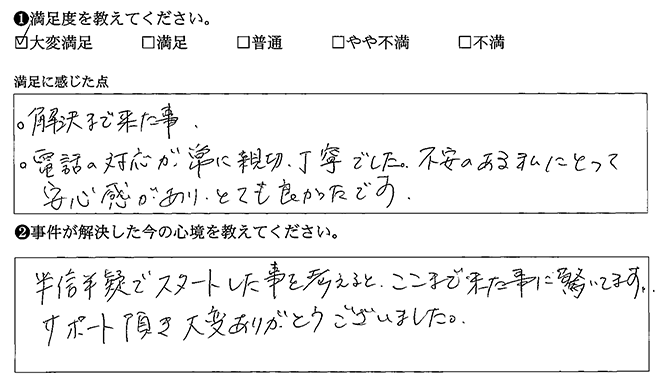 ❶満足度を教えてください。
☑大変満足 □満足 □普通 □やや不満 □不満
満足に感じた点
○解決まで来た事.
○電話の対応が常に親切、丁寧でした。不安のある私にとって
安心感があり、とても良かったです.
❷事件が解決した今の心境を教えてください。
半信半疑でスタートした事を考えると、ここまで来た事に驚いてます。
サポート頂き大変ありがとうございました。